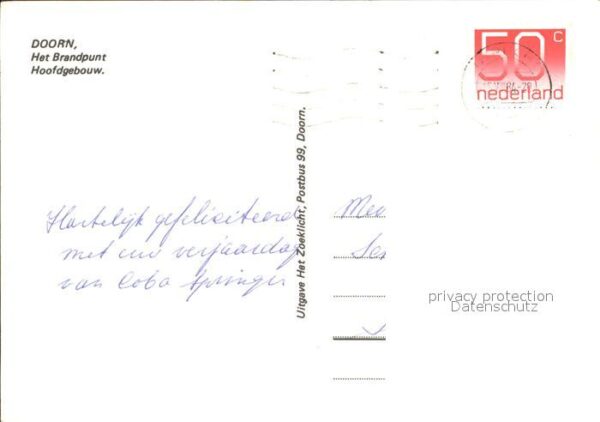 DOORN,
Het Brandpunt
Hoofdgebouw.
50 c
nederland
Hartelijk gefeliciteerd
met uw verjaardag
van Coba Springer
Uitgave Het Zoeklicht, Postbus 99, Doorn.
privacy protection
Datenschutz